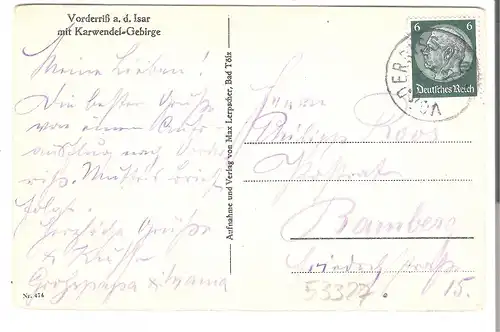 Vorderriß a. d. Isar
mit Karwendel-Gebirge
Meine Lieben!
Die besten Grüße
von einem Auto-
ausflug nach Vorder
riß. Muttis Brief
folgt.
Herzliche Grüße
& Küsse
Großpapa &
Nr. 474
Aufnahme und Verlag von Max Lerpscher, Bad Tölz
6 6
Deutsches Reich
Herrn
Philipp Roos
Bamberg
Friedrichstraße
15.
53327.